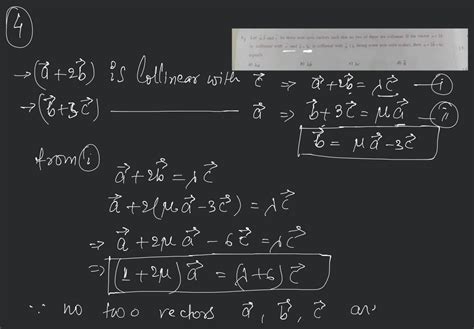 4
Let a⃗ and c⃗ be three non-zero vectors such that no two of these are collinear. If the vector a⃗ + 2b⃗
is collinear with c⃗ and b⃗ + 3c⃗ is collinear with a⃗, λ being some non-zero scalar, then a⃗ + 2b⃗ + 6c⃗
equals
→ (a⃗+2b⃗) is Collinear with c⃗ ⇒ a⃗+2b⃗ = λc⃗ — (i)
→ (b⃗+3c⃗) ———————— a⃗ ⇒ b⃗+3c⃗ = μa⃗ — (ii)
b⃗ = μa⃗-3c⃗
from (i)
a⃗+2b⃗ = λc⃗
a⃗+2(μa⃗-3c⃗) = λc⃗
⇒ a⃗+2μa⃗-6c⃗ = λc⃗
⇒ (1+2μ)a⃗ = (λ+6)c⃗
∵ no two vectors a⃗, b⃗, c⃗ are